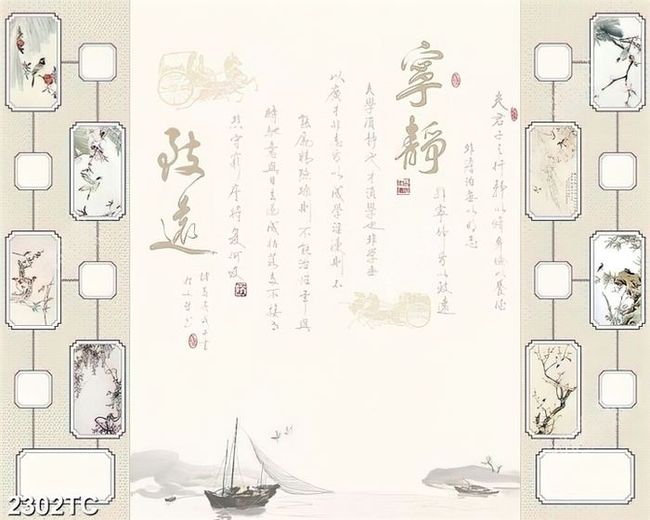 寧靜
致遠
夫君子之行靜以修身儉以養德
非澹泊無以明志
非寧靜無以致遠
夫學須靜也才須學也非學無
以廣才非志無以成學淫漫則不
能勵精險躁則不能治性年與
時馳意與日去遂成枯落多不接世
悲守窮廬將復何及
2302TC